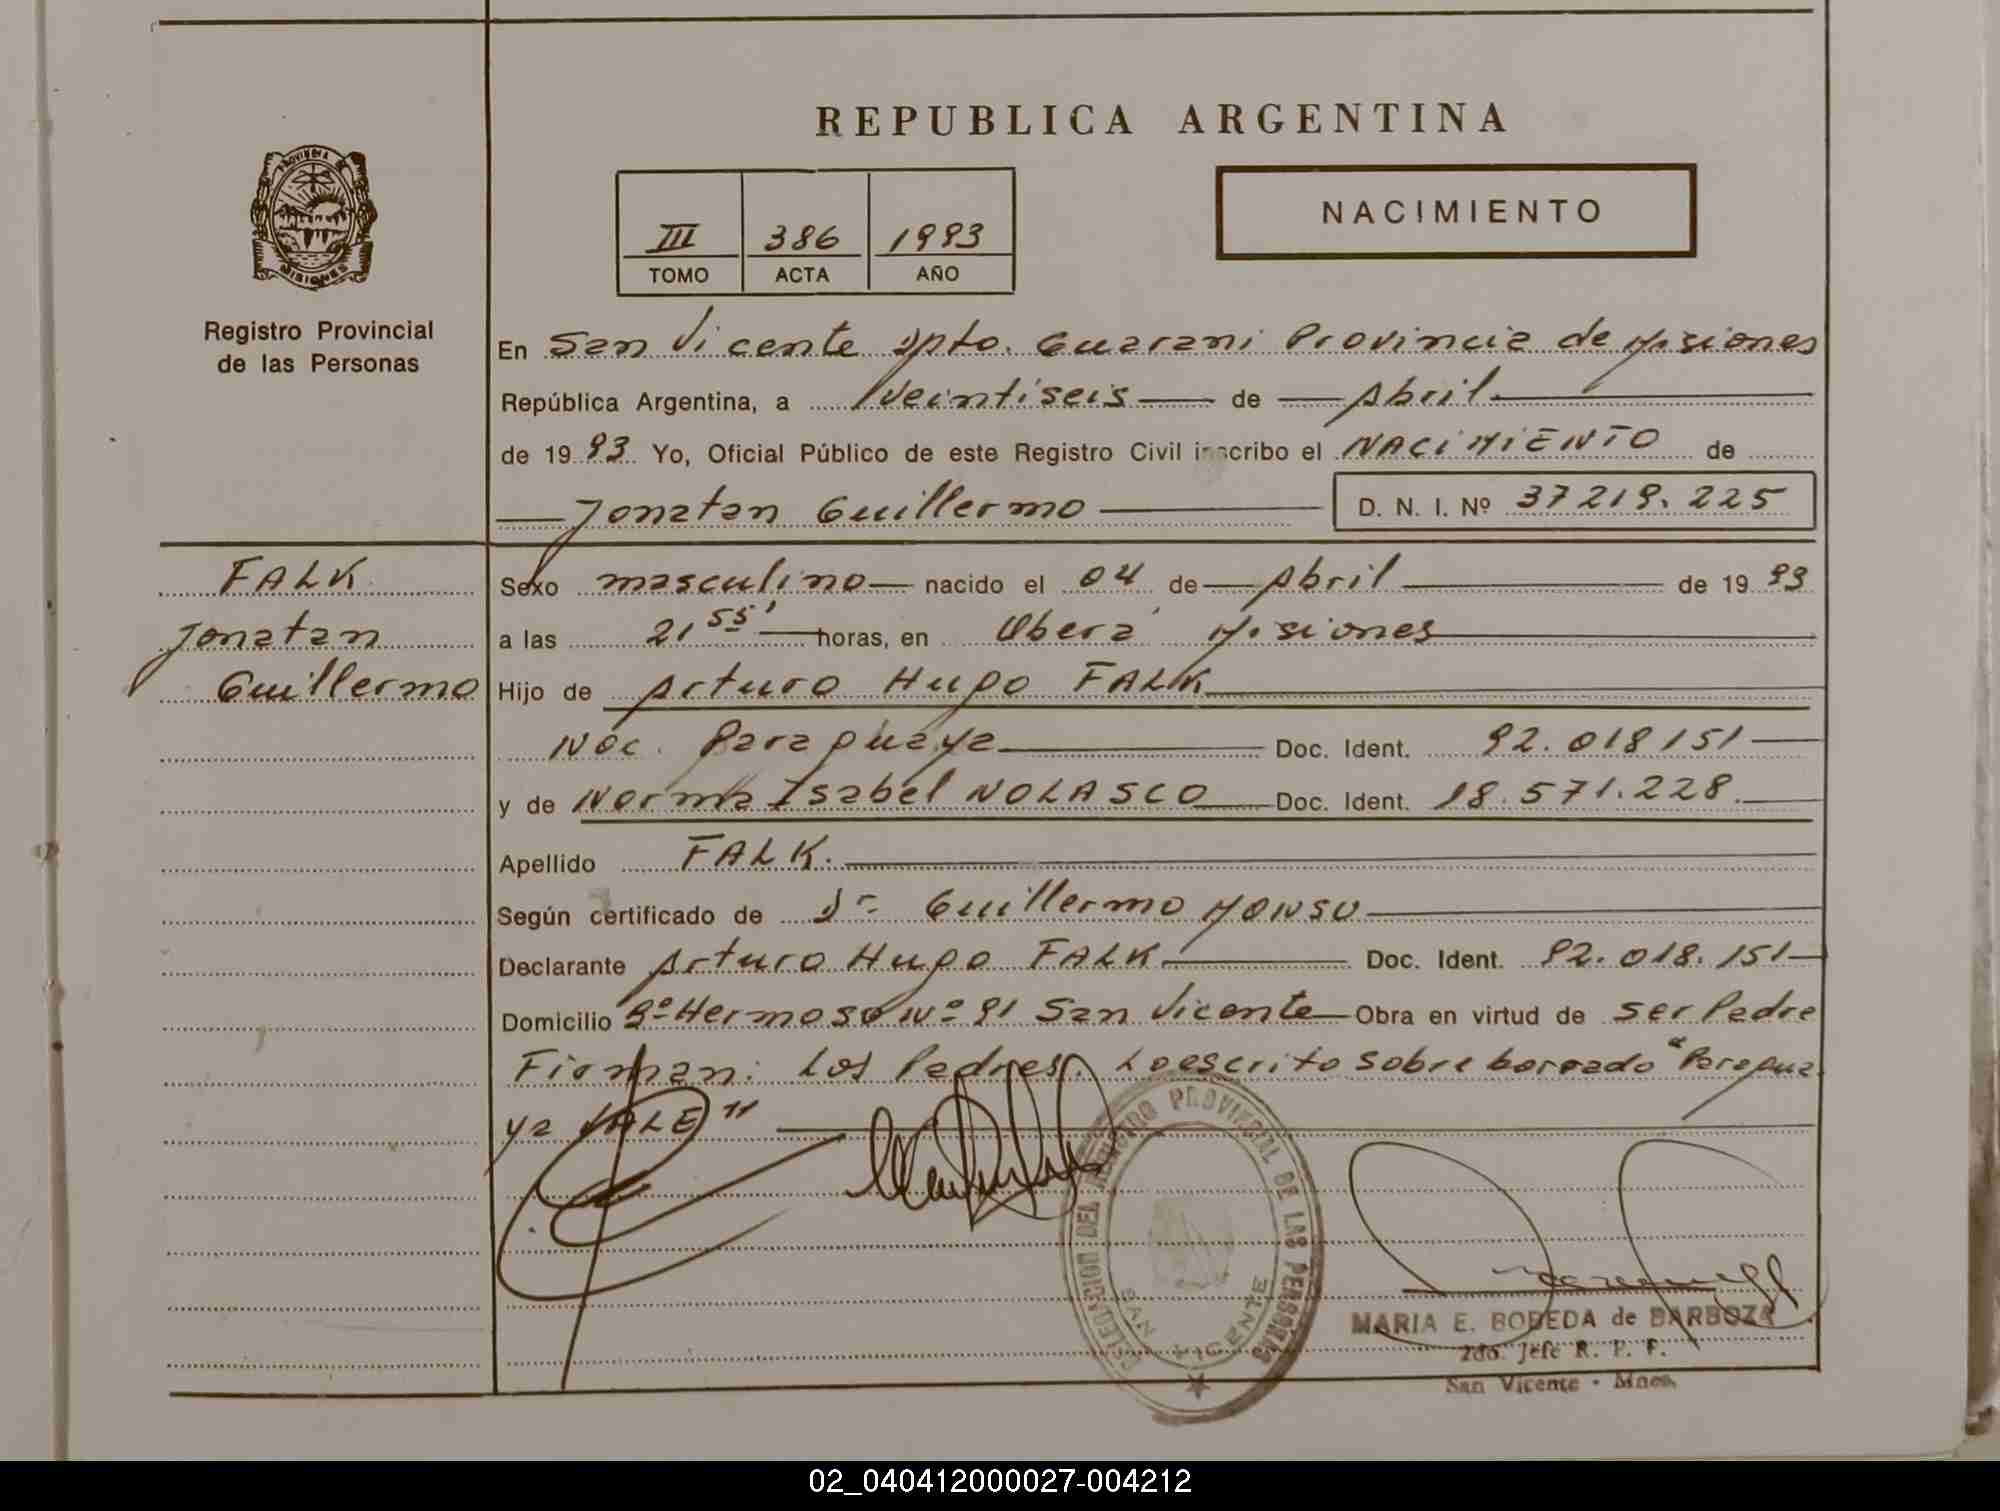 REPUBLICA ARGENTINA
PROVINCIA DE
MISIONES
Registro Provincial
de las Personas
III 386 1993
TOMO ACTA AÑO
NACIMIENTO
En San Vicente Dpto. Guarani Provincia de Misiones
República Argentina, a Veintiseis de Abril
de 1993 Yo, Oficial Público de este Registro Civil inscribo el NACIMIENTO de
Jonatan Guillermo D. N. I. Nº 37219.225
FALK
Jonatan
Guillermo
Sexo masculino nacido el 04 de Abril de 1993
a las 21 55' horas, en Oberá Misiones
Hijo de Arturo Hugo FALK
Nac. Paraguaya Doc. Ident. 92.018151
y de Norma Isabel NOLASCO Doc. Ident. 18.571.228.
Apellido FALK.
Según certificado de Dr Guillermo MONSU
Declarante Arturo Hugo FALK Doc. Ident. 92.018.151
Domicilio Bº Hermoso Nº 91 San Vicente Obra en virtud de ser Padre
Firman: Los Padres. Lo escrito sobre borrado "Paragua
ya VALE"
DELEGACION DEL REGISTRO PROVINCIAL DE LAS PERSONAS
SAN VICENTE
MARIA E. BOBEDA de BARBOZA
2do. Jefe R. P. P.
San Vicente - Mnes.
02_040412000027-004212